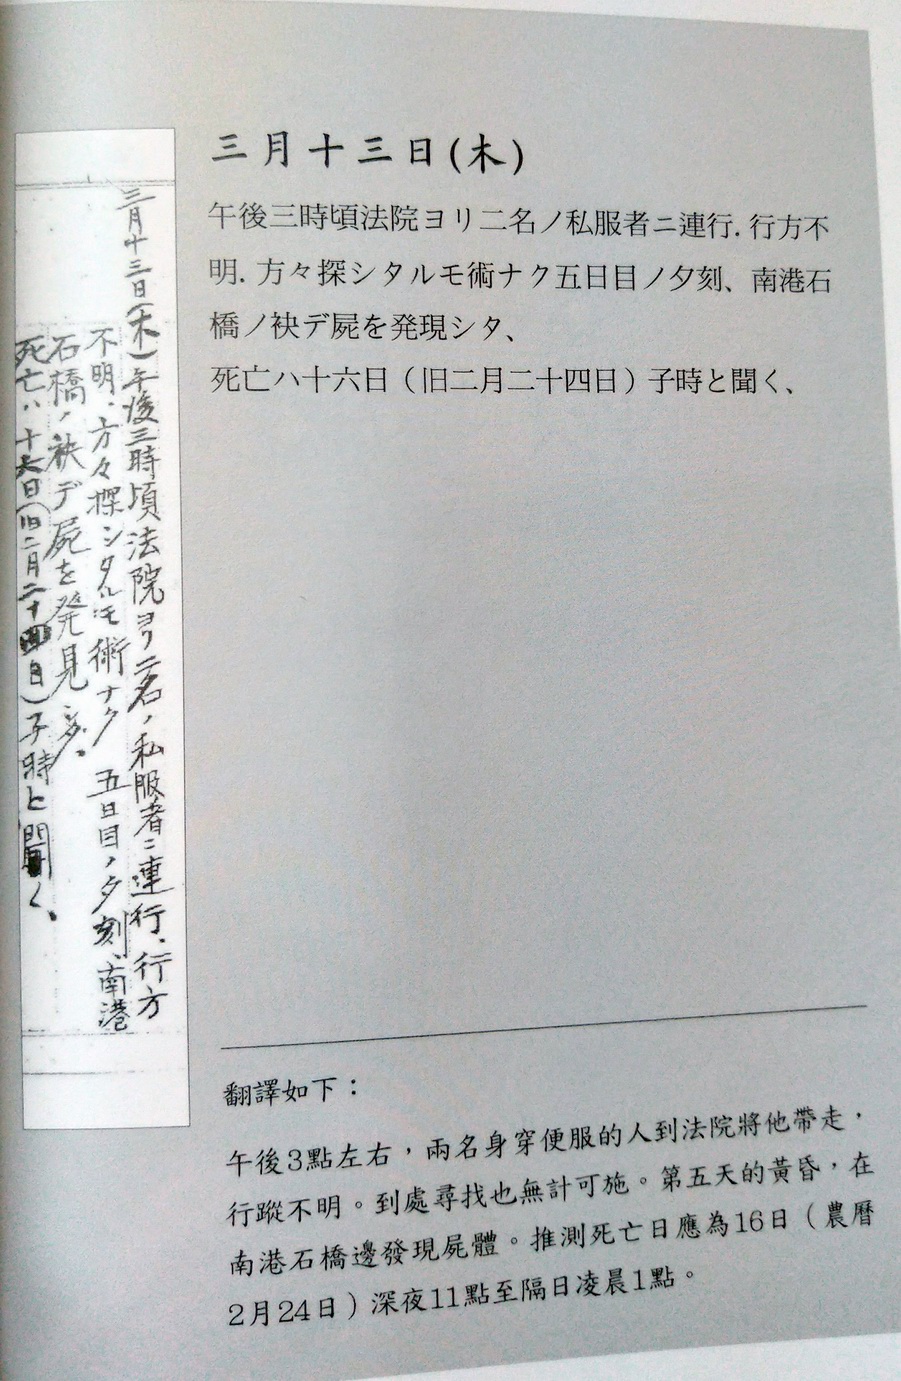 三月十三日(木)午後三時頃法院ヨリ二名ノ私服者ニ連行.行方
不明.方々探シタルモ術ナク 五日目ノ夕刻、南港
石橋ノ袂デ屍を発見シタ.
死亡ハ十六日(旧二月二十四日)子時と聞く、
三月十三日(木)
午後三時頃法院ヨリ二名ノ私服者ニ連行.行方不
明.方々探シタルモ術ナク五日目ノ夕刻、南港石
橋ノ袂デ屍を発現シタ、
死亡ハ十六日（旧二月二十四日）子時と聞く、
翻譯如下：
午後3點左右，兩名身穿便服的人到法院將他帶走，
行蹤不明。到處尋找也無計可施。第五天的黃昏，在
南港石橋邊發現屍體。推測死亡日應為16日（農曆
2月24日）深夜11點至隔日凌晨1點。